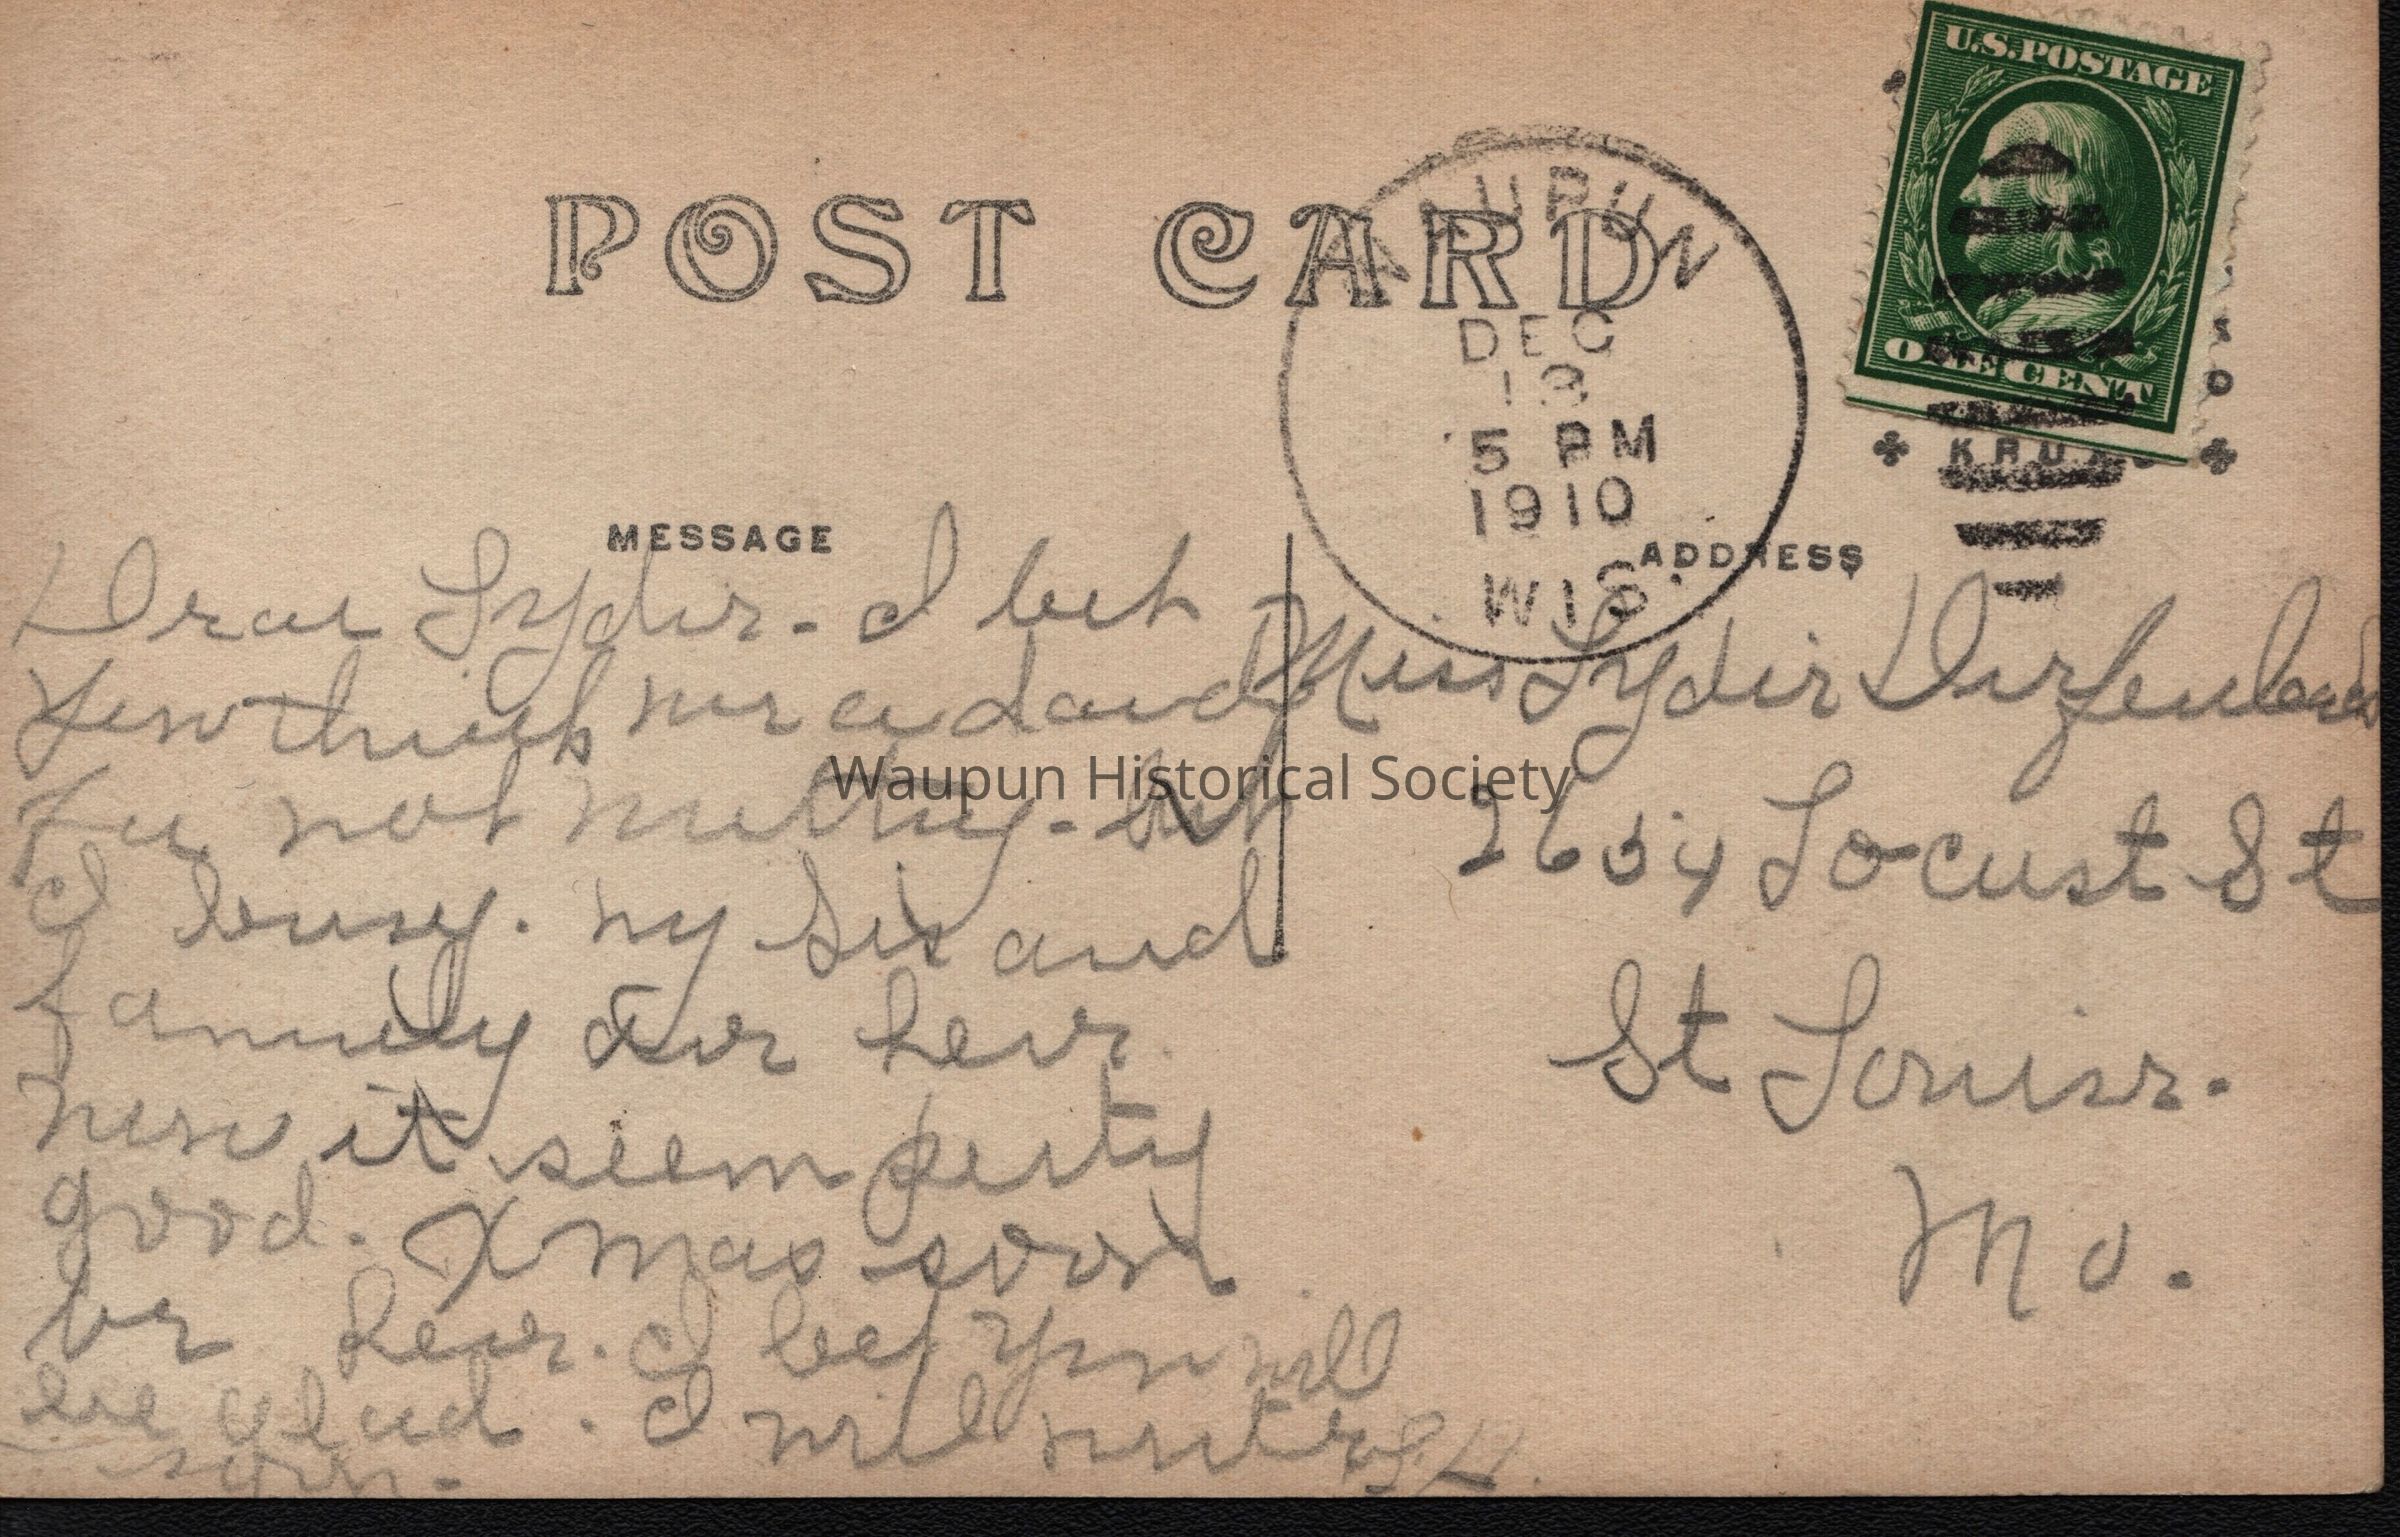 U.S. POSTAGE
ONE CENT
POST CARD
WAUPUN
DEC
13
5 PM
1910
WIS.
MESSAGE
ADDRESS
Dear Lydie - I bet
you think me a dandy
for not writing - but
I busy. my Sis and
family are here.
now it seem perty
good. Xmas soon
be here. I bet you will
be glad. I will write
soon.
Miss Lydie
2634 Locust St
St Louise.
Mo.
Waupun Historical Society